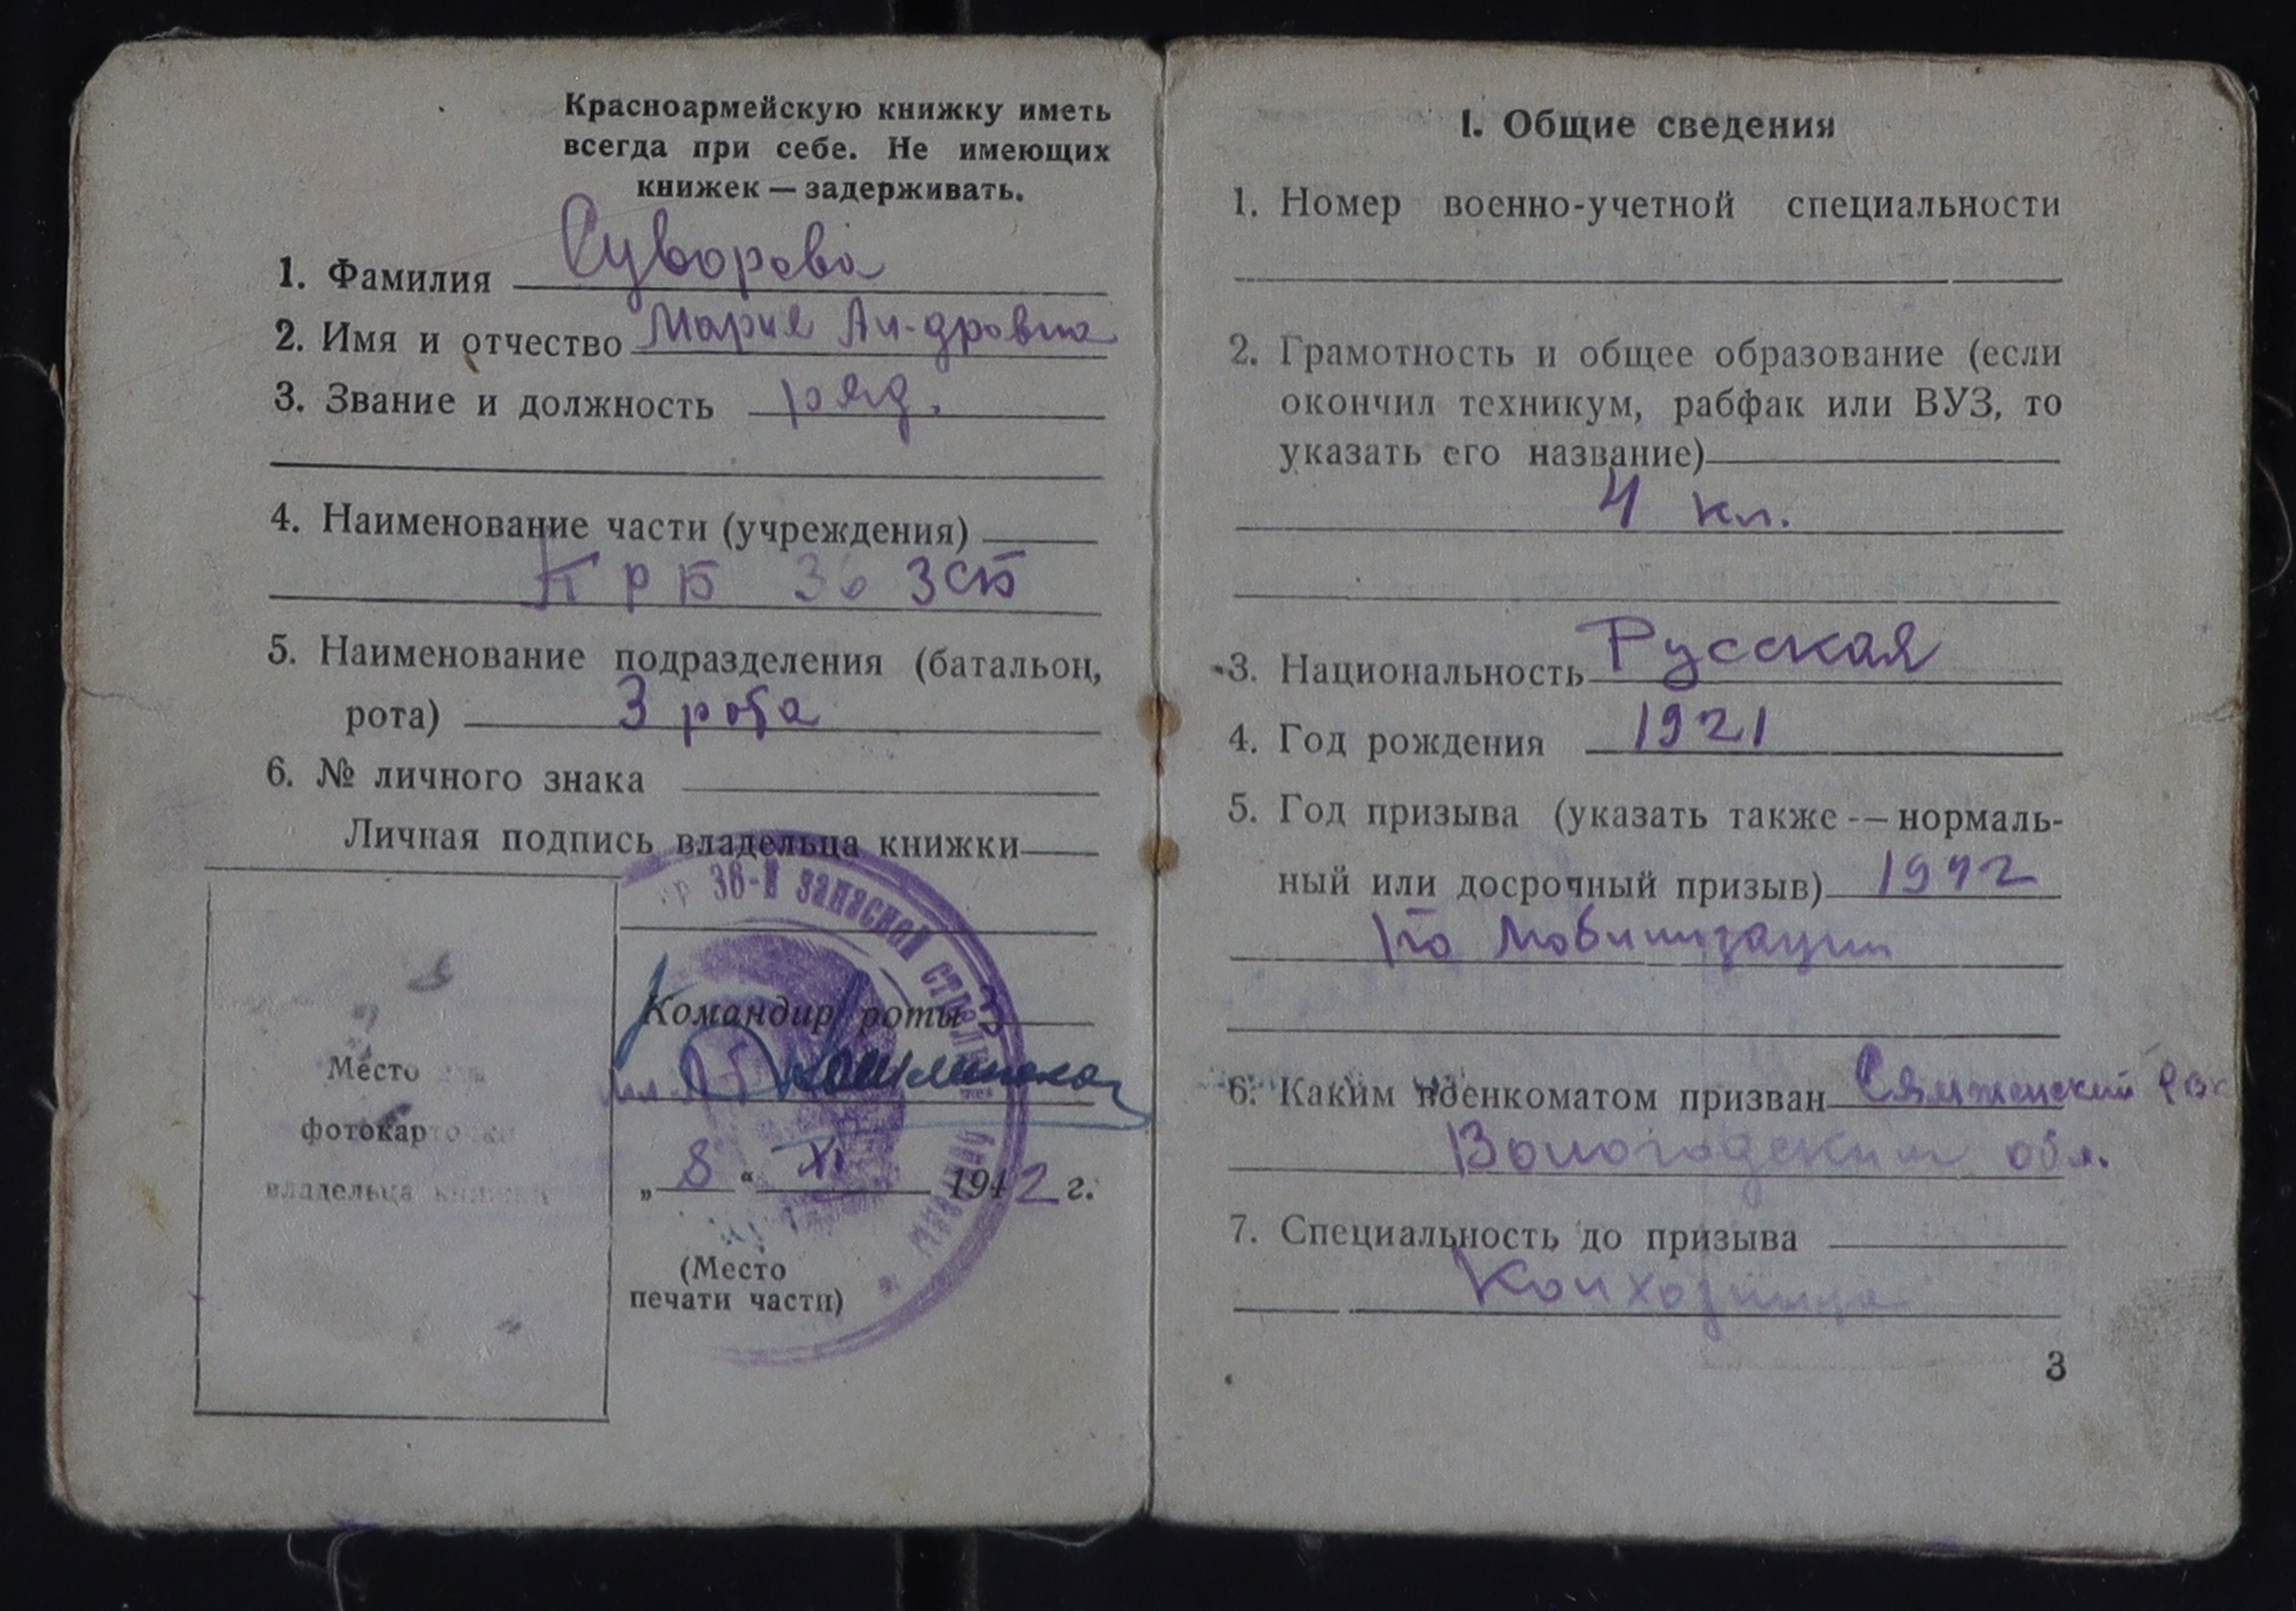 Красноармейскую книжку иметь
всегда при себе. Не имеющих
книжек — задерживать.
1. Фамилия Суворова
2. Имя и отчество Мария Ан-дровна
3. Звание и должность ряд.
4. Наименование части (учреждения)
КРБ 36 ЗСБ
5. Наименование подразделения (батальон,
рота) 3 рота
6. № личного знака
Личная подпись владельца книжки
36-й запасной стрелк
Командир роты 3
„8“ XI 1942 г.
(Место
печати части)
Место для
фотокарточки
владельца книжки
I. Общие сведения
1. Номер военно-учетной специальности
2. Грамотность и общее образование (если
окончил техникум, рабфак или ВУЗ, то
указать его название)
4 кл.
3. Национальность Русская
4. Год рождения 1921
5. Год призыва (указать также — нормаль-
ный или досрочный призыв) 1942
по мобилизации
6. Каким военкоматом призван Сямженский
Вологодской обл.
7. Специальность до призыва
Колхозница
3